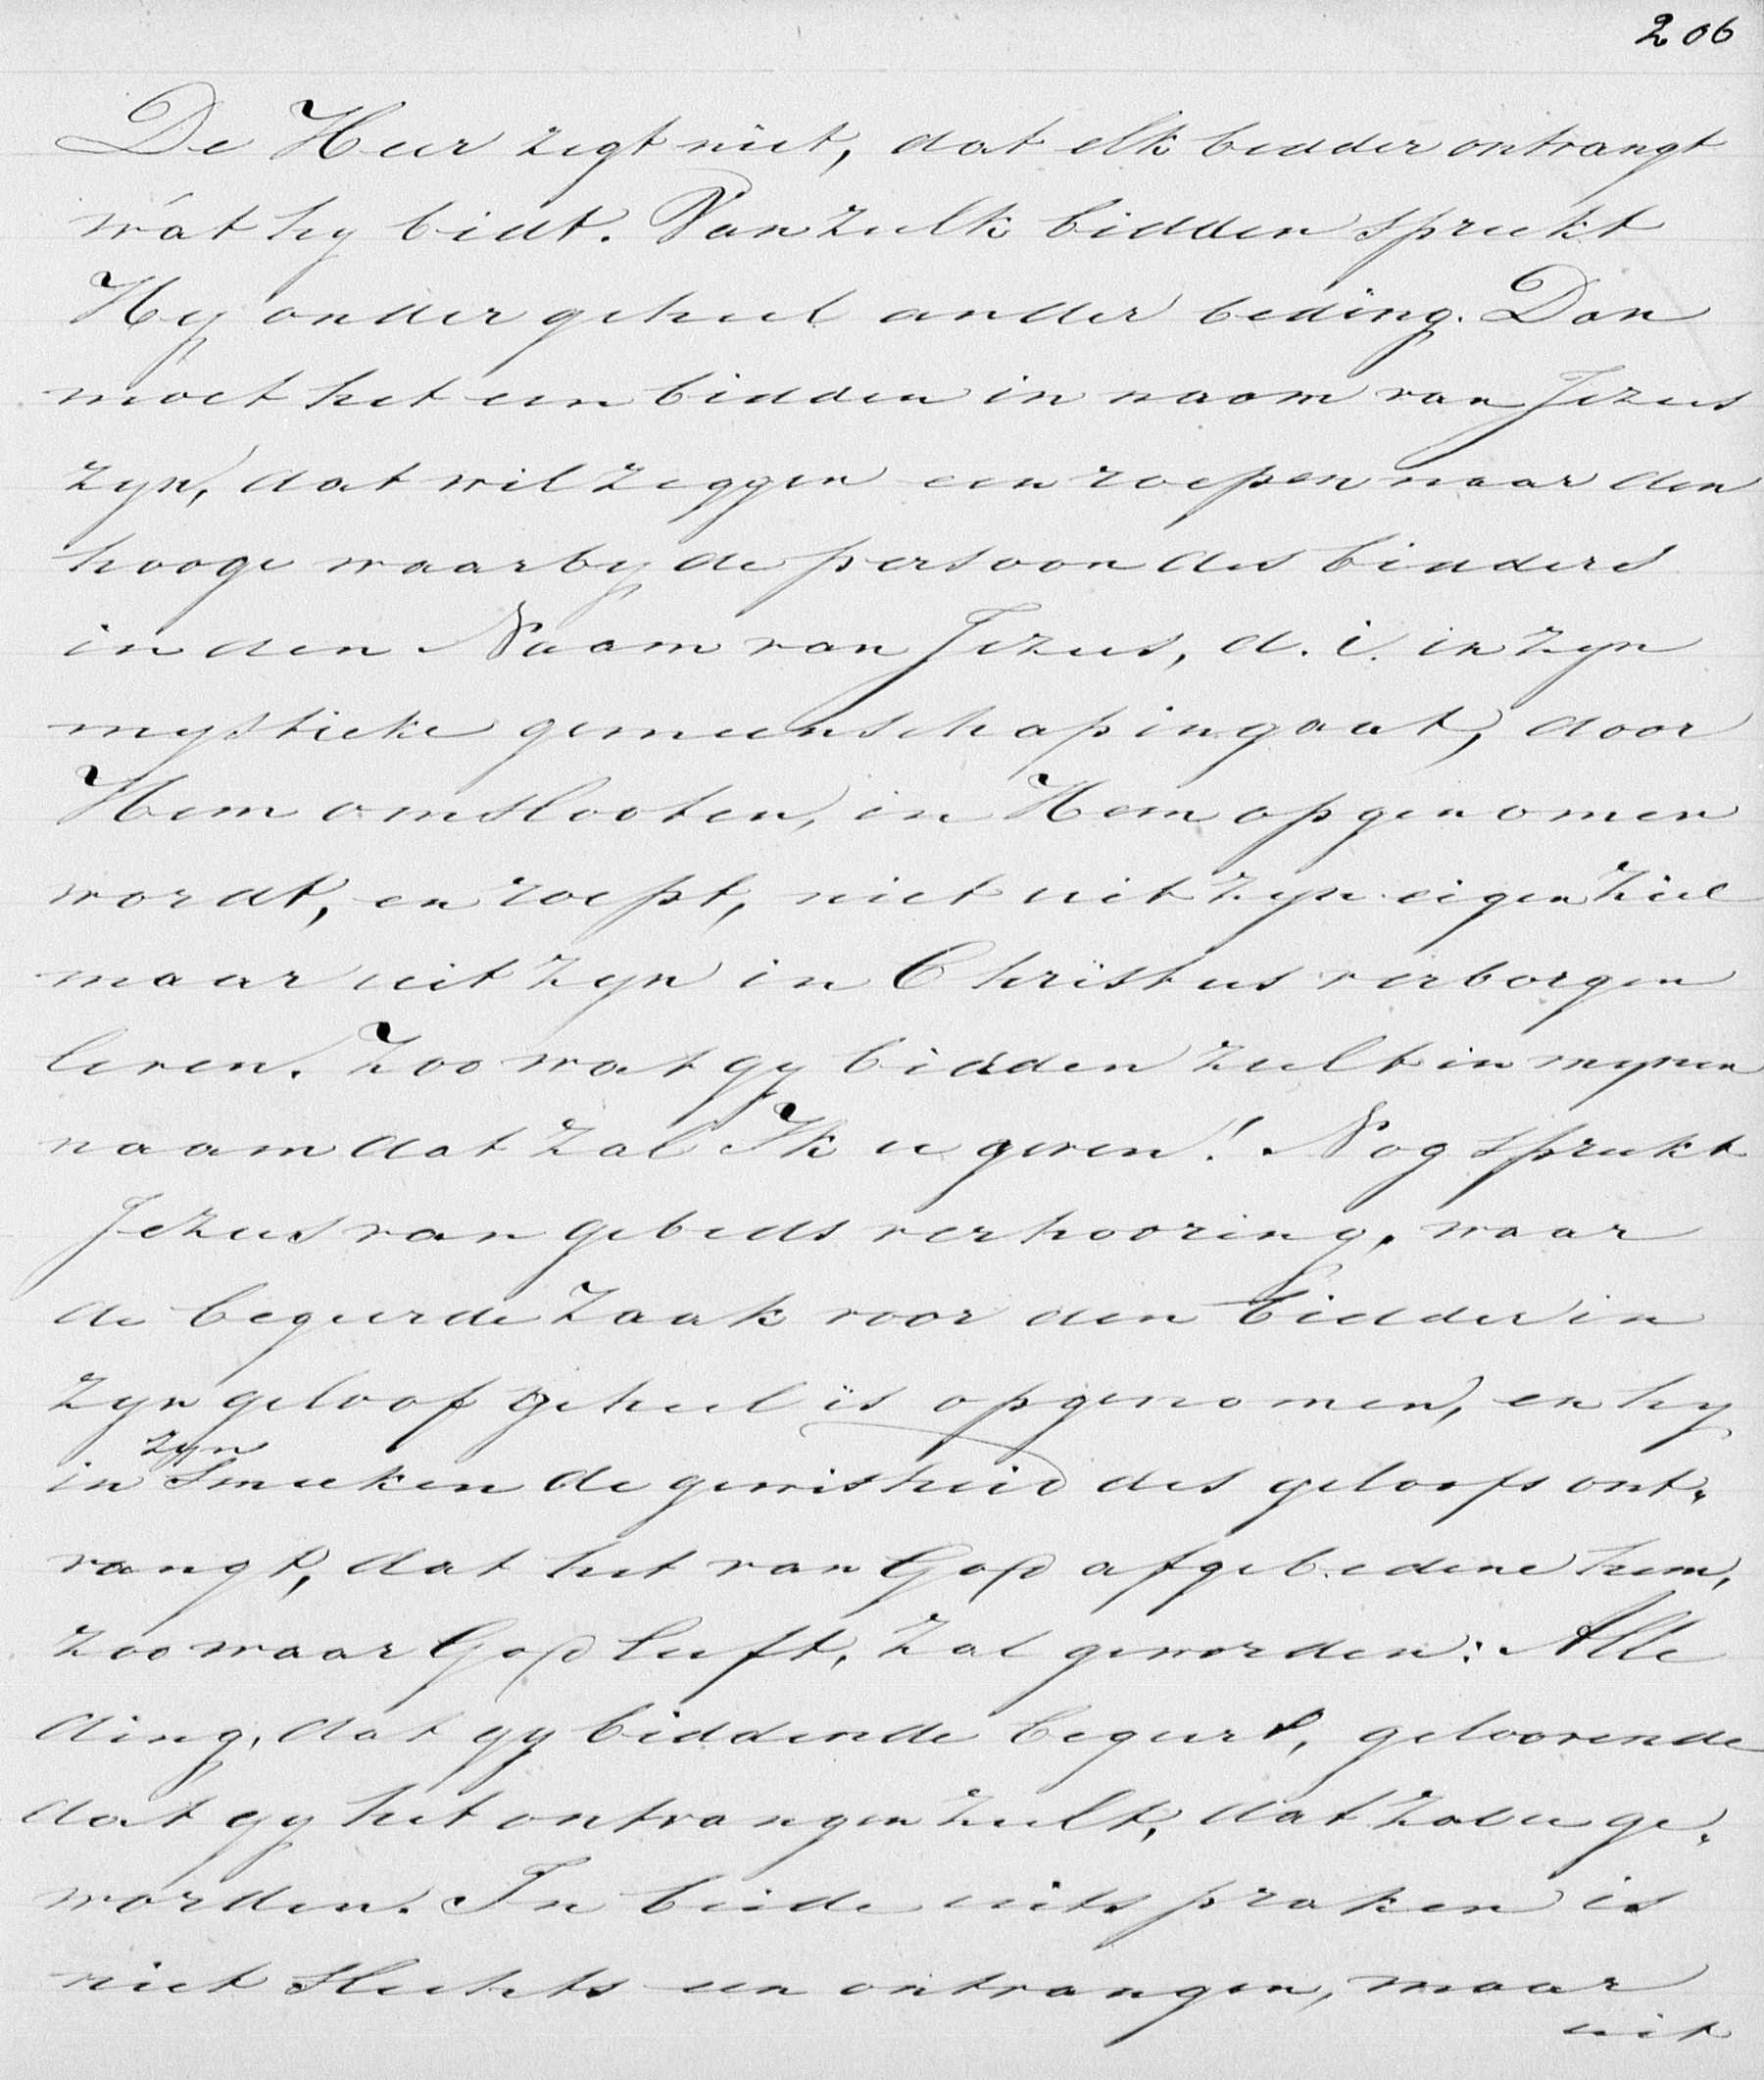 206
De Heer zegt niet, dat elk bidder ontvangt
wát hy bidt. Van zulk bidden spreekt
Hy onder geheel ander beding. Dan
moet het een bidden in naam van Jezus
zyn, dat wil zeggen een roepen naar den
hooge waarby de persoon des bidders
in den Naam van Jezus, d. i. in zyn
mystieke gemeenschap ingaat, door
Hem omslooten, in Hem opgenomen
wordt, en roept, niet uit zyn eigen ziel
maar uit zyn in Christus verborgen
leven. Zoo wat gy bidden zult in mynen
naam dat zal Ik u geven! Nog spreekt
Jezus van gebedsverhooring, waar
de begeerde zaak voor den bidder in
zyn geloof geheel is opgenomen, en hy
in zyn Smeeken de gewisheid des geloofs ont-
vangt, dat het van God afgebedene hem,
zoo waar God leeft, zal geworden: Alle
ding, dat gy biddende begeert, geloovende
dat gy het ontvangen zult, dat zal u ge-
worden. In beide uitspraken is
niet slechts een ontvangen, maar
uit